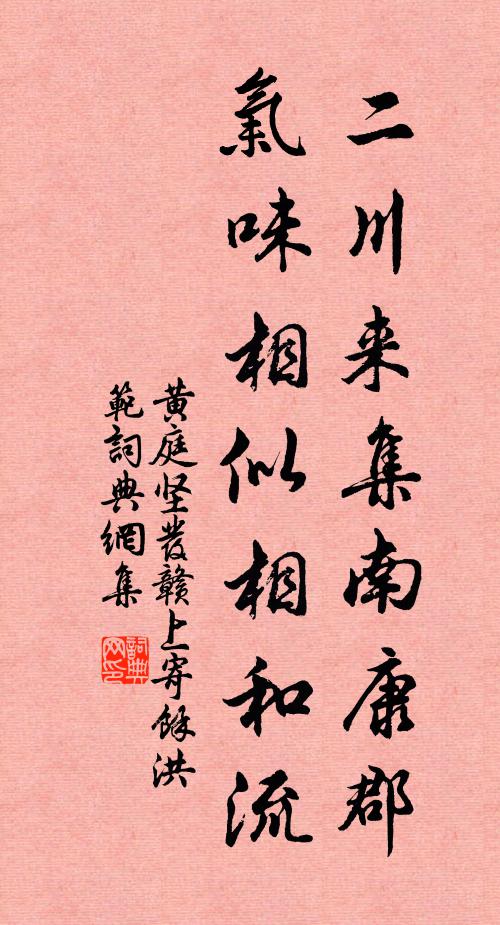 二川来集南康郡
氣味相似相和流
黄庭坚發贛上寄餘洪
範詞典網集
詞典網印